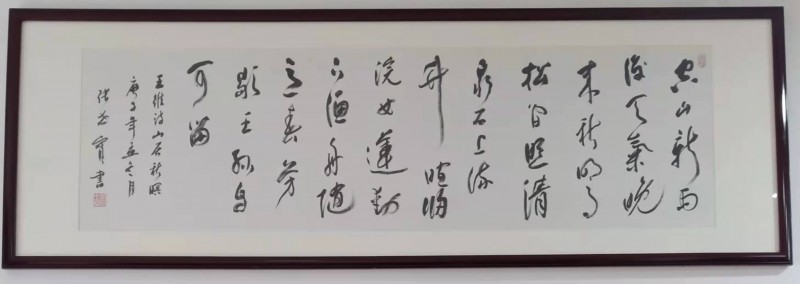 空山新雨
後天氣晚
来秋明月
松间照清
泉石上流
竹喧归
浣女蓮動
下渔舟随
意春芳
歇王孫自
可留
王维诗山居秋暝
庚子年冬月
書